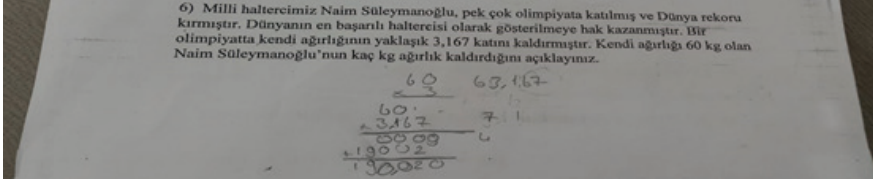 6) Milli haltercimiz Naim Süleymanoğlu, pek çok olimpiyata katılmış ve Dünya rekoru
kırmıştır. Dünyanın en başarılı haltercisi olarak gösterilmeye hak kazanmıştır. Bir
olimpiyatta kendi ağırlığının yaklaşık 3,167 katını kaldırmıştır. Kendi ağırlığı 60 kg olan
Naim Süleymanoğlu'nun kaç kg ağırlık kaldırdığını açıklayınız.
60 63,167
× 3
60
× 3,167
0000
+19002
190,020